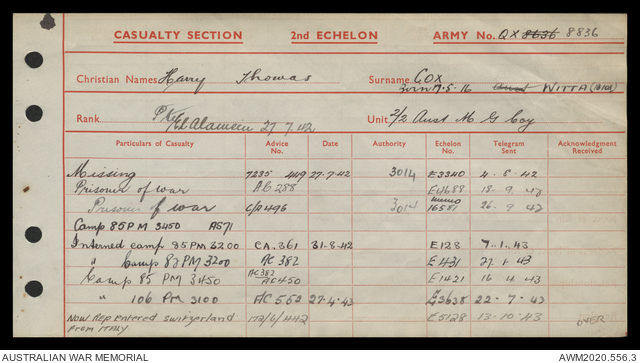 CASUALTY SECTION 2nd ECHELON ARMY No. QX 8636 8836
Christian Names Harry Thomas Surname COX
Born 17.5.16 WITTA
Rank Pte Unit 2/2 Aust M G Coy
El Alamein 27 7.42
Particulars of Casualty Advice No. Date Authority Echelon No. Telegram Sent Acknowledgment Received
Missing 7235 449 27.7.42 3014 E3340 4.8.42
Prisoner of war AC 288 E4688 18.9.42
Prisoner of war C/A 496 3014 memo 16581 26.9.42
Camp 85 PM 3450 AS71
Interned camp 85 PM 3200 CA.361 31.8.42 E128 7.1.43
" Camp 82 PM 3200 AC 382 E431 27.1.43
Camp 85 PM 3450 AC 382 AC 450 E1421 16.4.43
" 106 PM 3100 AC 552 27.4.43 E3638 22.7.43
Now rep entered Switzerland from Italy E5128 13.10.43 OVER
AUSTRALIAN WAR MEMORIAL AWM2020.556.3